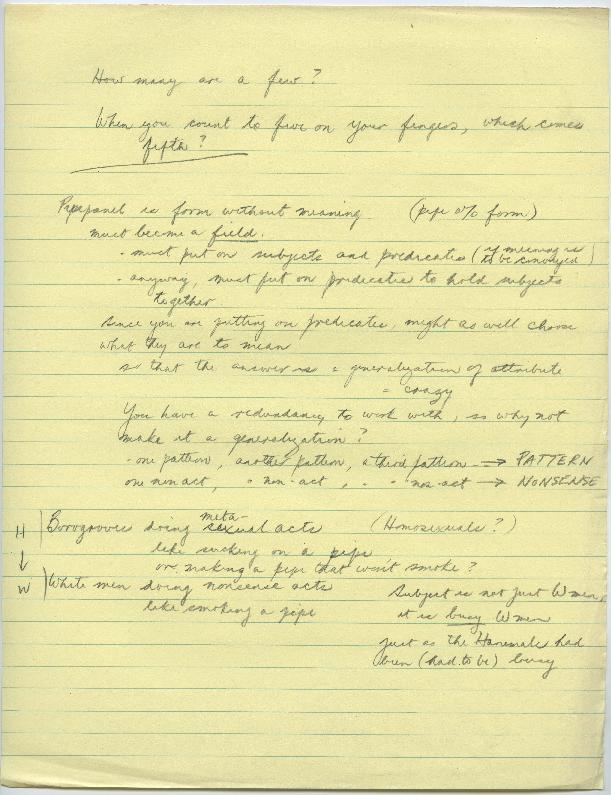 How many are a few?
When you count to five on your fingers, which comes
fifth?
Pipepanel is form without meaning (pipe o% form)
must become a field.
- must put on subjects and predicates (if meaning is
to be conveyed)
- anyway, must put on predicates to hold subjects
together.
since you are putting on predicates, might as well choose
what they are to mean
so that the answer is = generalization of attribute
= crazy
You have a redundancy to work with, so why not
make it a generalization?
- one pattern, another pattern, a third pattern → PATTERN
one non act, " non-act, " " non-act → NONSENSE
meta-
H Borogroves doing sexual acts (Homosexuals?)
↓ like sucking on a pipe
or making a pipe that won't smoke?
W White men doing nonsense acts
like smoking a pipe
Subject is not just Women,
it is busy Women
just as the had
been (had to be) busy